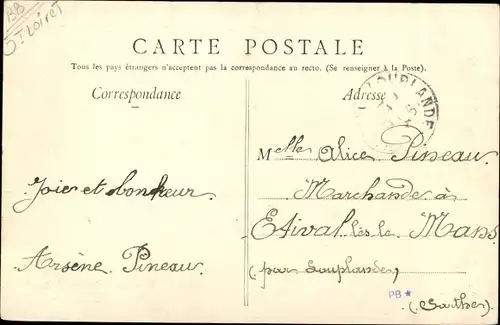 BB
Dt Loiret
CARTE POSTALE
Tous les pays étrangers n'acceptent pas la correspondance au recto. (Se renseigner à la Poste).
Correspondance
Adresse
LOUPLANDE
Melle Alice Pineau
Marchande à
Etival lès le Mans
(par Louplande)
(Sarthe)
Joie et bonheur
Arsène Pineau
PB★